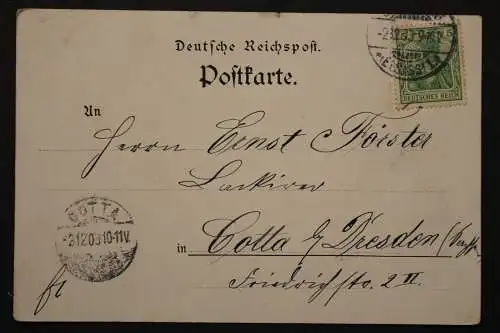 Deutsche Reichspost.
Postkarte.
-2.12.03.
*(MEISSEN)1a
DEUTSCHES REICH
An
Herrn Ernst Förster
Lackirer
COTTA
-3.12.03.10-11V.
in Cotta b/ Dresden
Friedrichstr. 2 II.
fr